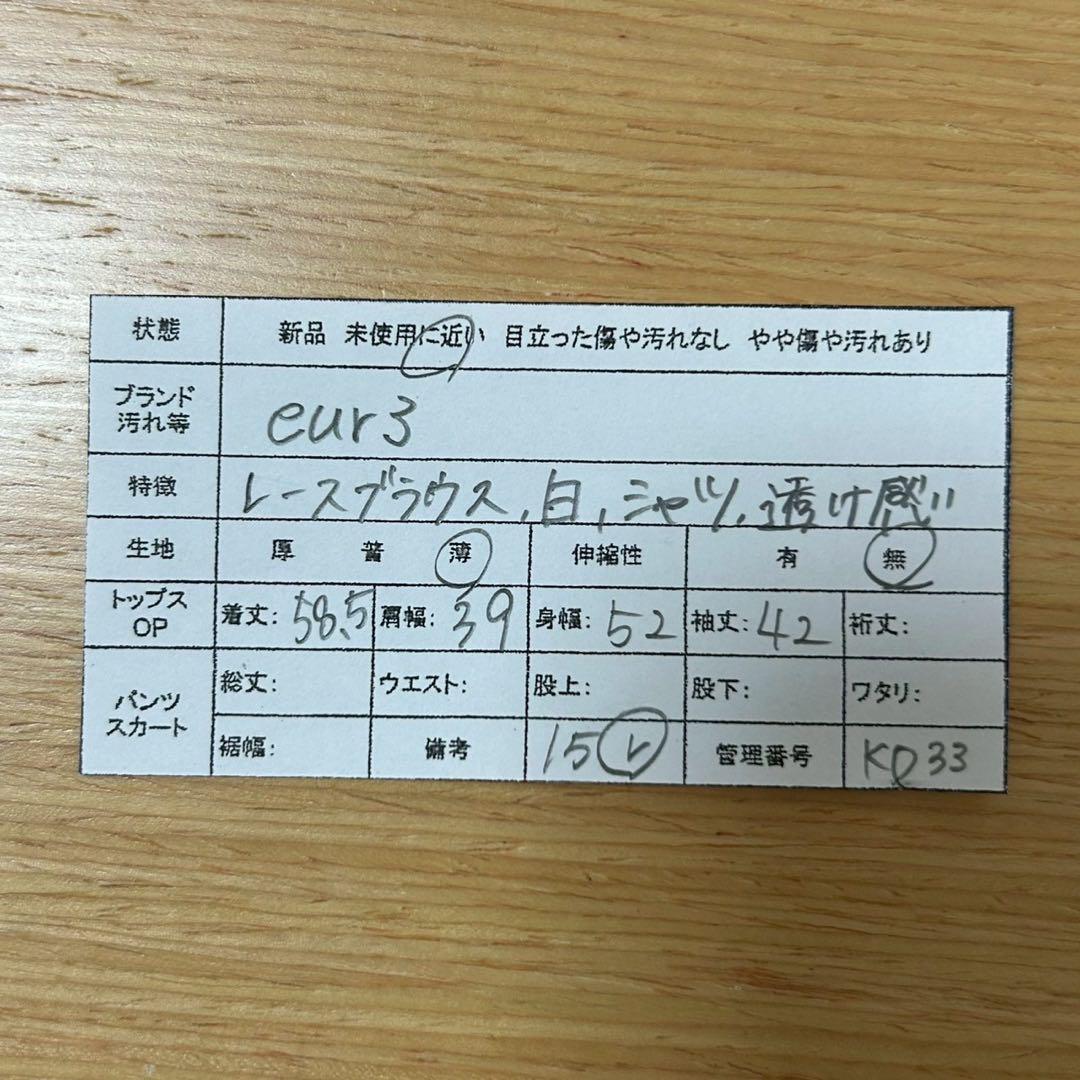 状態 新品 未使用に近い 目立った傷や汚れなし やや傷や汚れあり
ブランド 汚れ等 eur3
特徴 レースブラウス,白,シャツ,透け感い
生地 厚 普 薄 伸縮性 有 無
トップス OP 着丈: 58.5 肩幅: 39 身幅: 52 袖丈: 42 裄丈:
パンツ スカート 総丈: ウエスト: 股上: 股下: ワタリ:
裾幅: 備考 15 管理番号 33